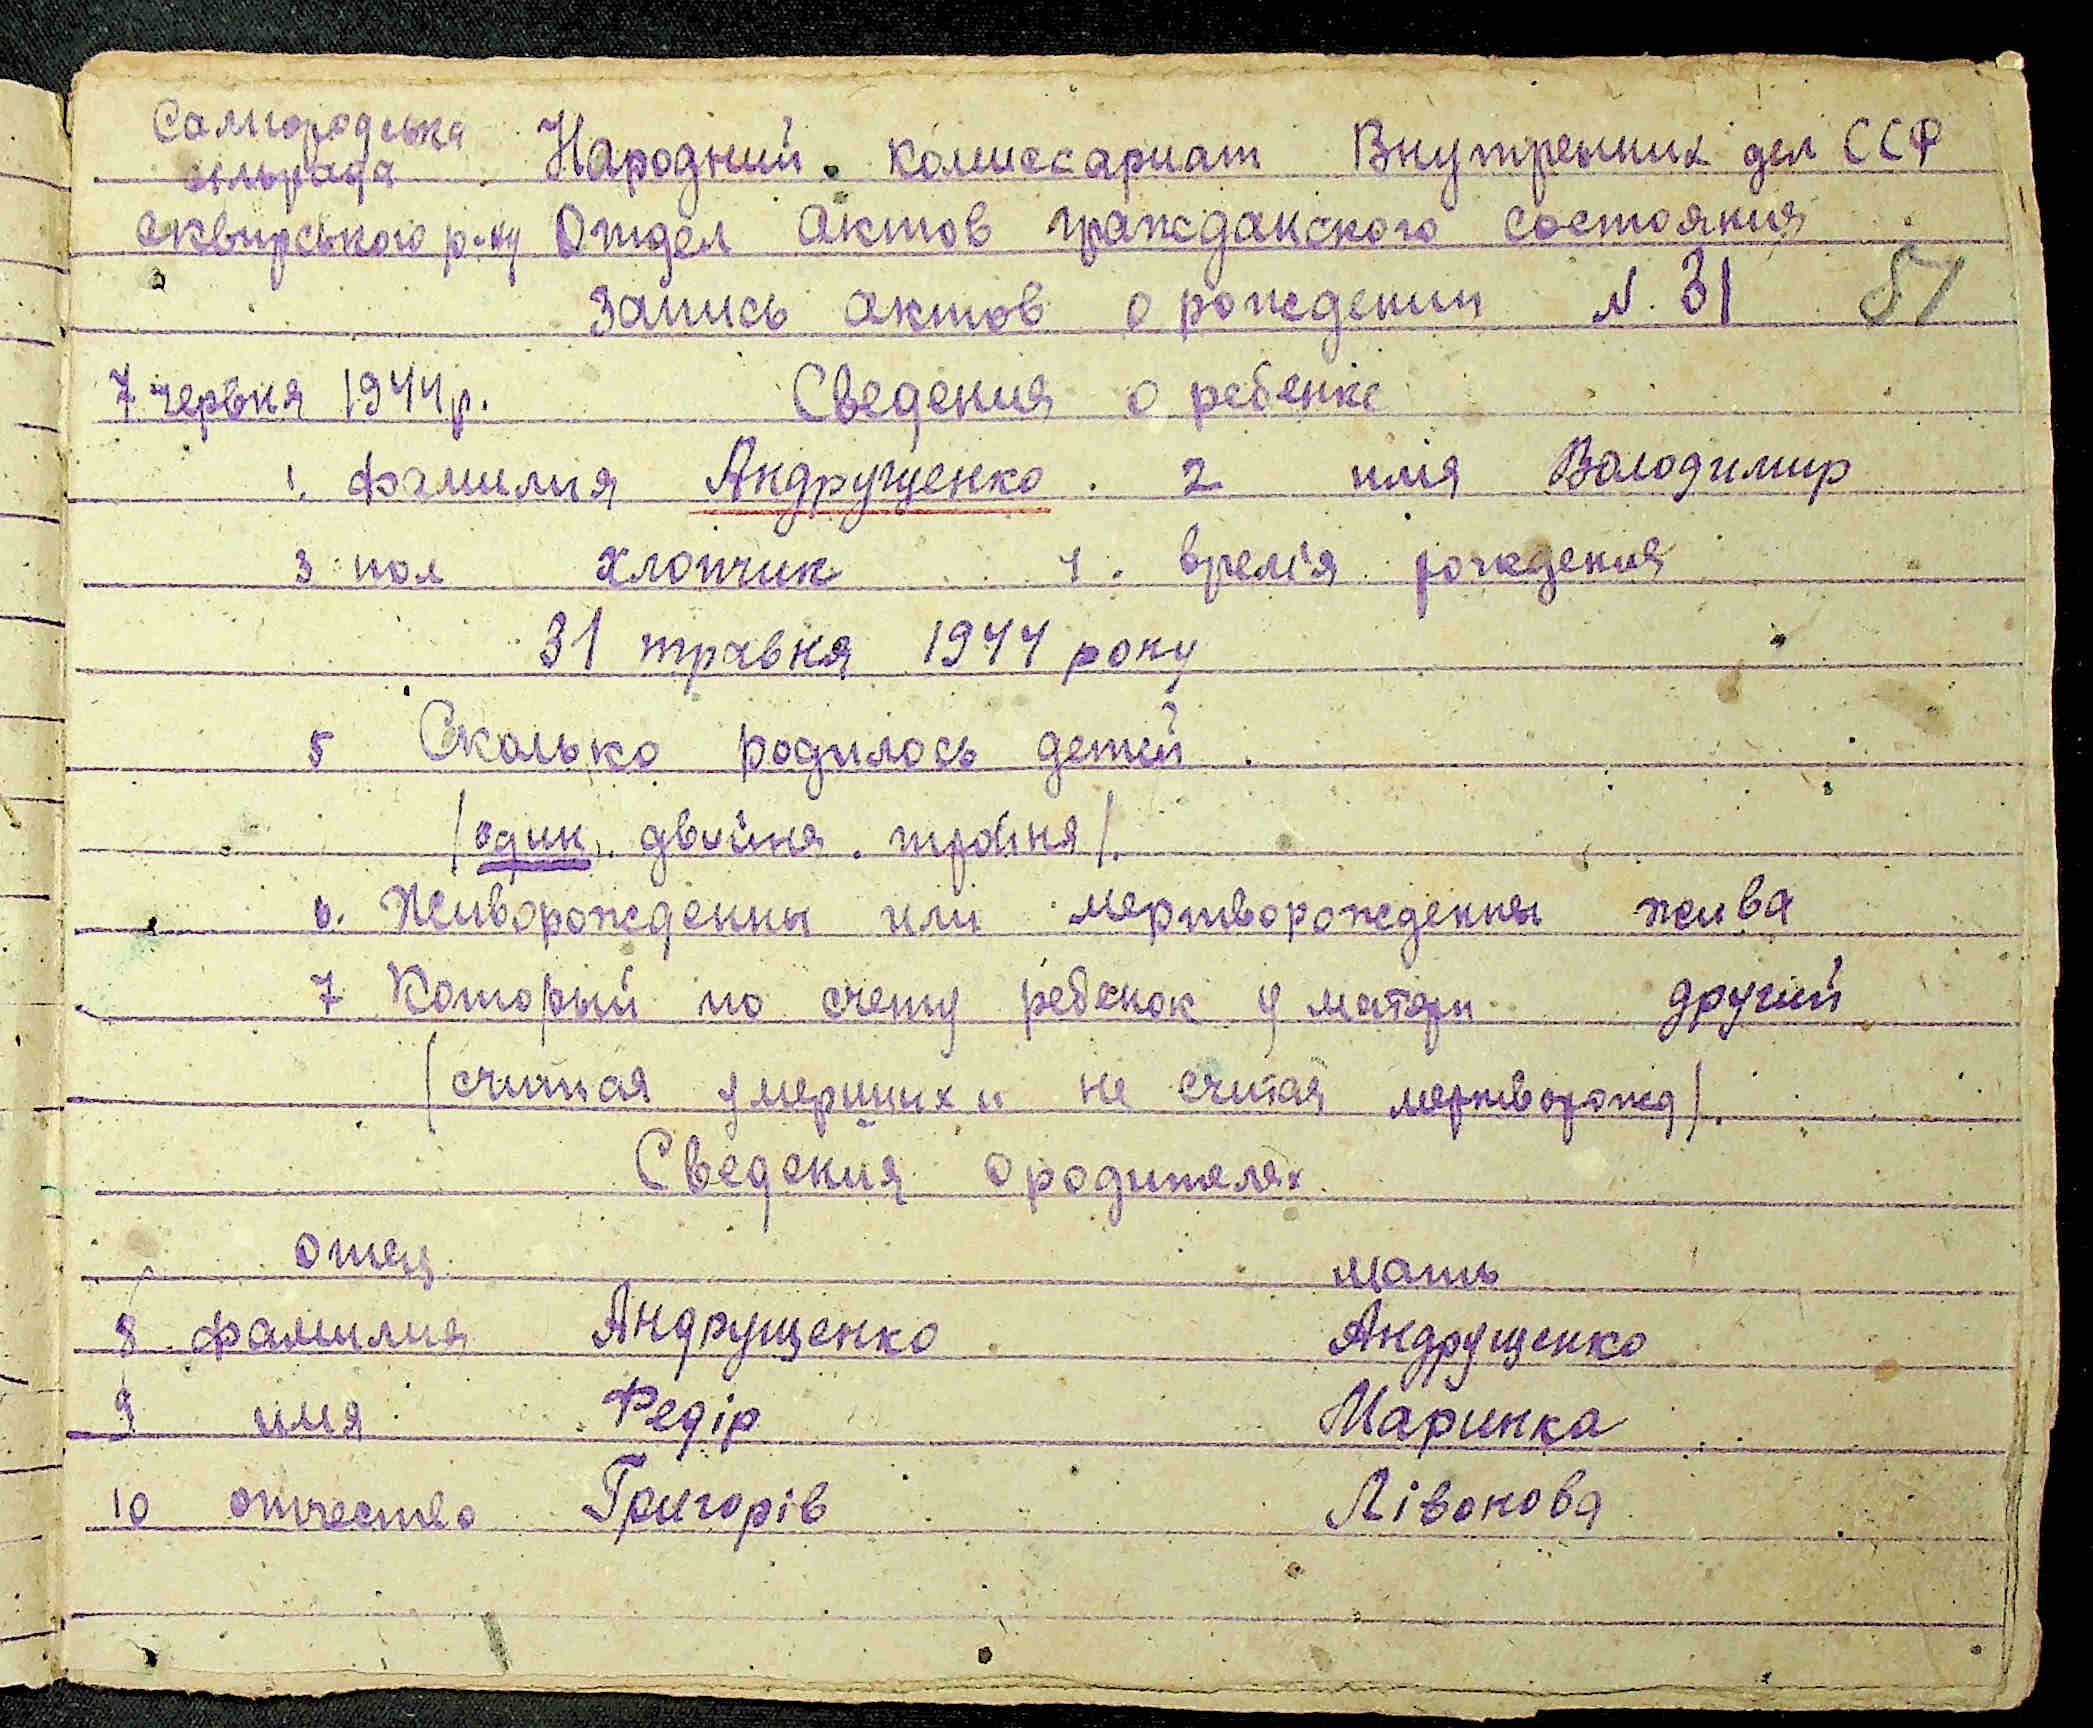 Самгородська
сільрада Народний комиссариат Внутренних дел ССР
сквирського р-ну Отдел актов гражданского состояния
Запись актов о рождении N. 31 51
7 червня 1944 р. Сведения о ребенке
1. фамилия Андрущенко. 2 имя Володимир
3 пол хлопчик 4. время рождения
31 травня 1944 року
5 Сколько родилось детей.
/один, двойня. тройня/.
6. Живорожденны или мертворожденны жива
7 Который по счету ребенок у матери другий
(считая умерших и не считая мертворожд/.
Сведения о родителях
отец мать
8 фамилия Андрущенко Андрущенко
9 имя Федір Маринка
10 отчество Григорів Лівонова